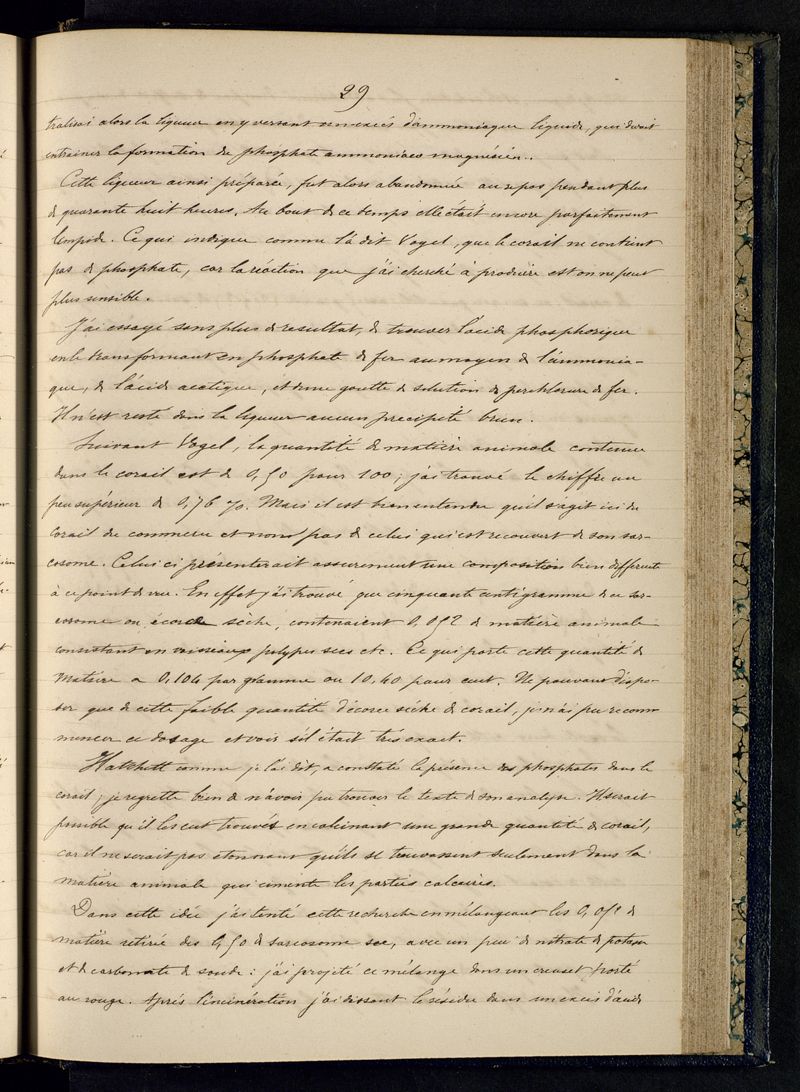 29
tralisai alors la liqueur en y versant un excès d'ammoniaque liquide, qui devait
entrainer la formation de phosphate ammoniaco magnésien.
Cette liqueur ainsi préparée, fut alors abandonnée au repos pendant plus
de quarante huit heures. Au bout de ce temps elle était encore parfaitement
limpide. Ce qui indique comme l'a dit Vogel, que le corail ne contient
pas de phosphate, car la réaction que j'ai cherché à produire est on ne peut
plus sensible.
J'ai essayé sans plus de resultat, de trouver l'acide phosphorique
en le transformant en phosphate de fer au moyen de l'ammonia-
que, de l'acide acetique, et d'une goutte de solution de perchlorure de fer.
Il n'est resté dans la liqueur aucun precipité brun.
Suivant Vogel, la quantité de matière animale contenue
dans le corail est de 0,50 pour 100; j'ai trouvé le chiffre un
peu supérieur de 0,76 %. Mais il est bien entendu qu'il s'agit ici du
corail du commerce et non pas de celui qui est recouvert de son sar-
cosome. Celui ci présenterait assurement une composition bien differente
à ce point de vue. En effet j'ai trouvé que cinquante centigramme de ce sar-
cosome ou écorce sèche, contenaient 0,052 de matière animale
consistant en vaisseaux polypes secs etc. Ce qui porte cette quantité de
matière a 0,104 par gramme ou 10.40 pour cent. Ne pouvant dispo-
ser que de cette faible quantité d'écorce sèche de corail, je n'ai pu recom
mencer ce dosage et voir s'il était très exact.
Hatchett comme je l'ai dit, a constaté la présence des phosphates dans le
corail; je regrette bien de n'avoir pu trouver le texte de son analyse. Il serait
possible qu'il les eut trouvés en calcinant une grande quantité de corail,
car il ne serait pas etonnant qu'ils se trouvassent seulement dans la
matière animale qui cimente les parties calcaires.
Dans cette idée j'ai tenté cette recherche en mélangeant les 0,052 de
matière retirée des 0,50 de sarcosome sec, avec un peu de nitrate de potasse
et de carbonate de soude: j'ai projeté ce mélange dans un creuset porté
au rouge. Après l'incinération j'ai dissout le résidu dans un excès d'acide